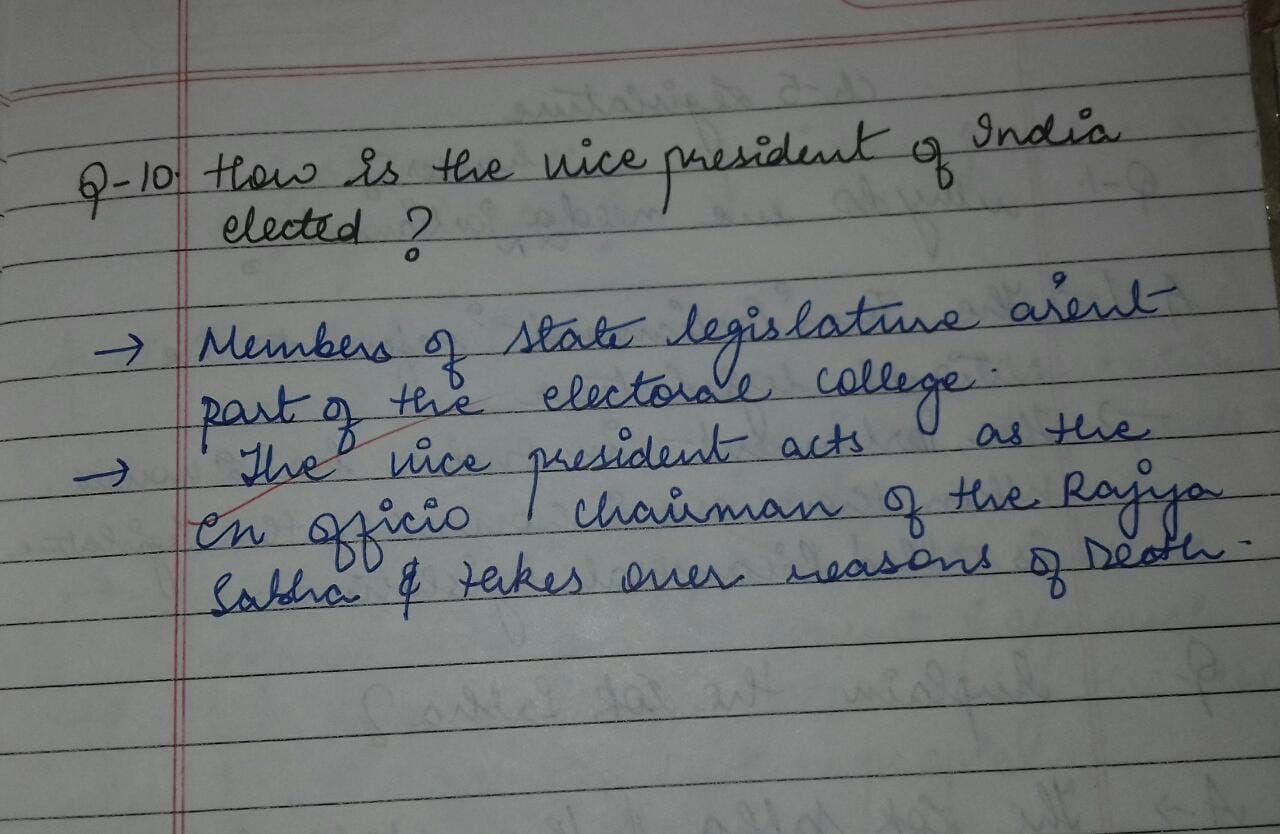 Q-10. How is the vice president of India
elected ?
→ Members of state legislature aren't
part of the electoral college.
→ The vice president acts as the
en officio chairman of the Rajya
Sabha & takes over reasons of Death.